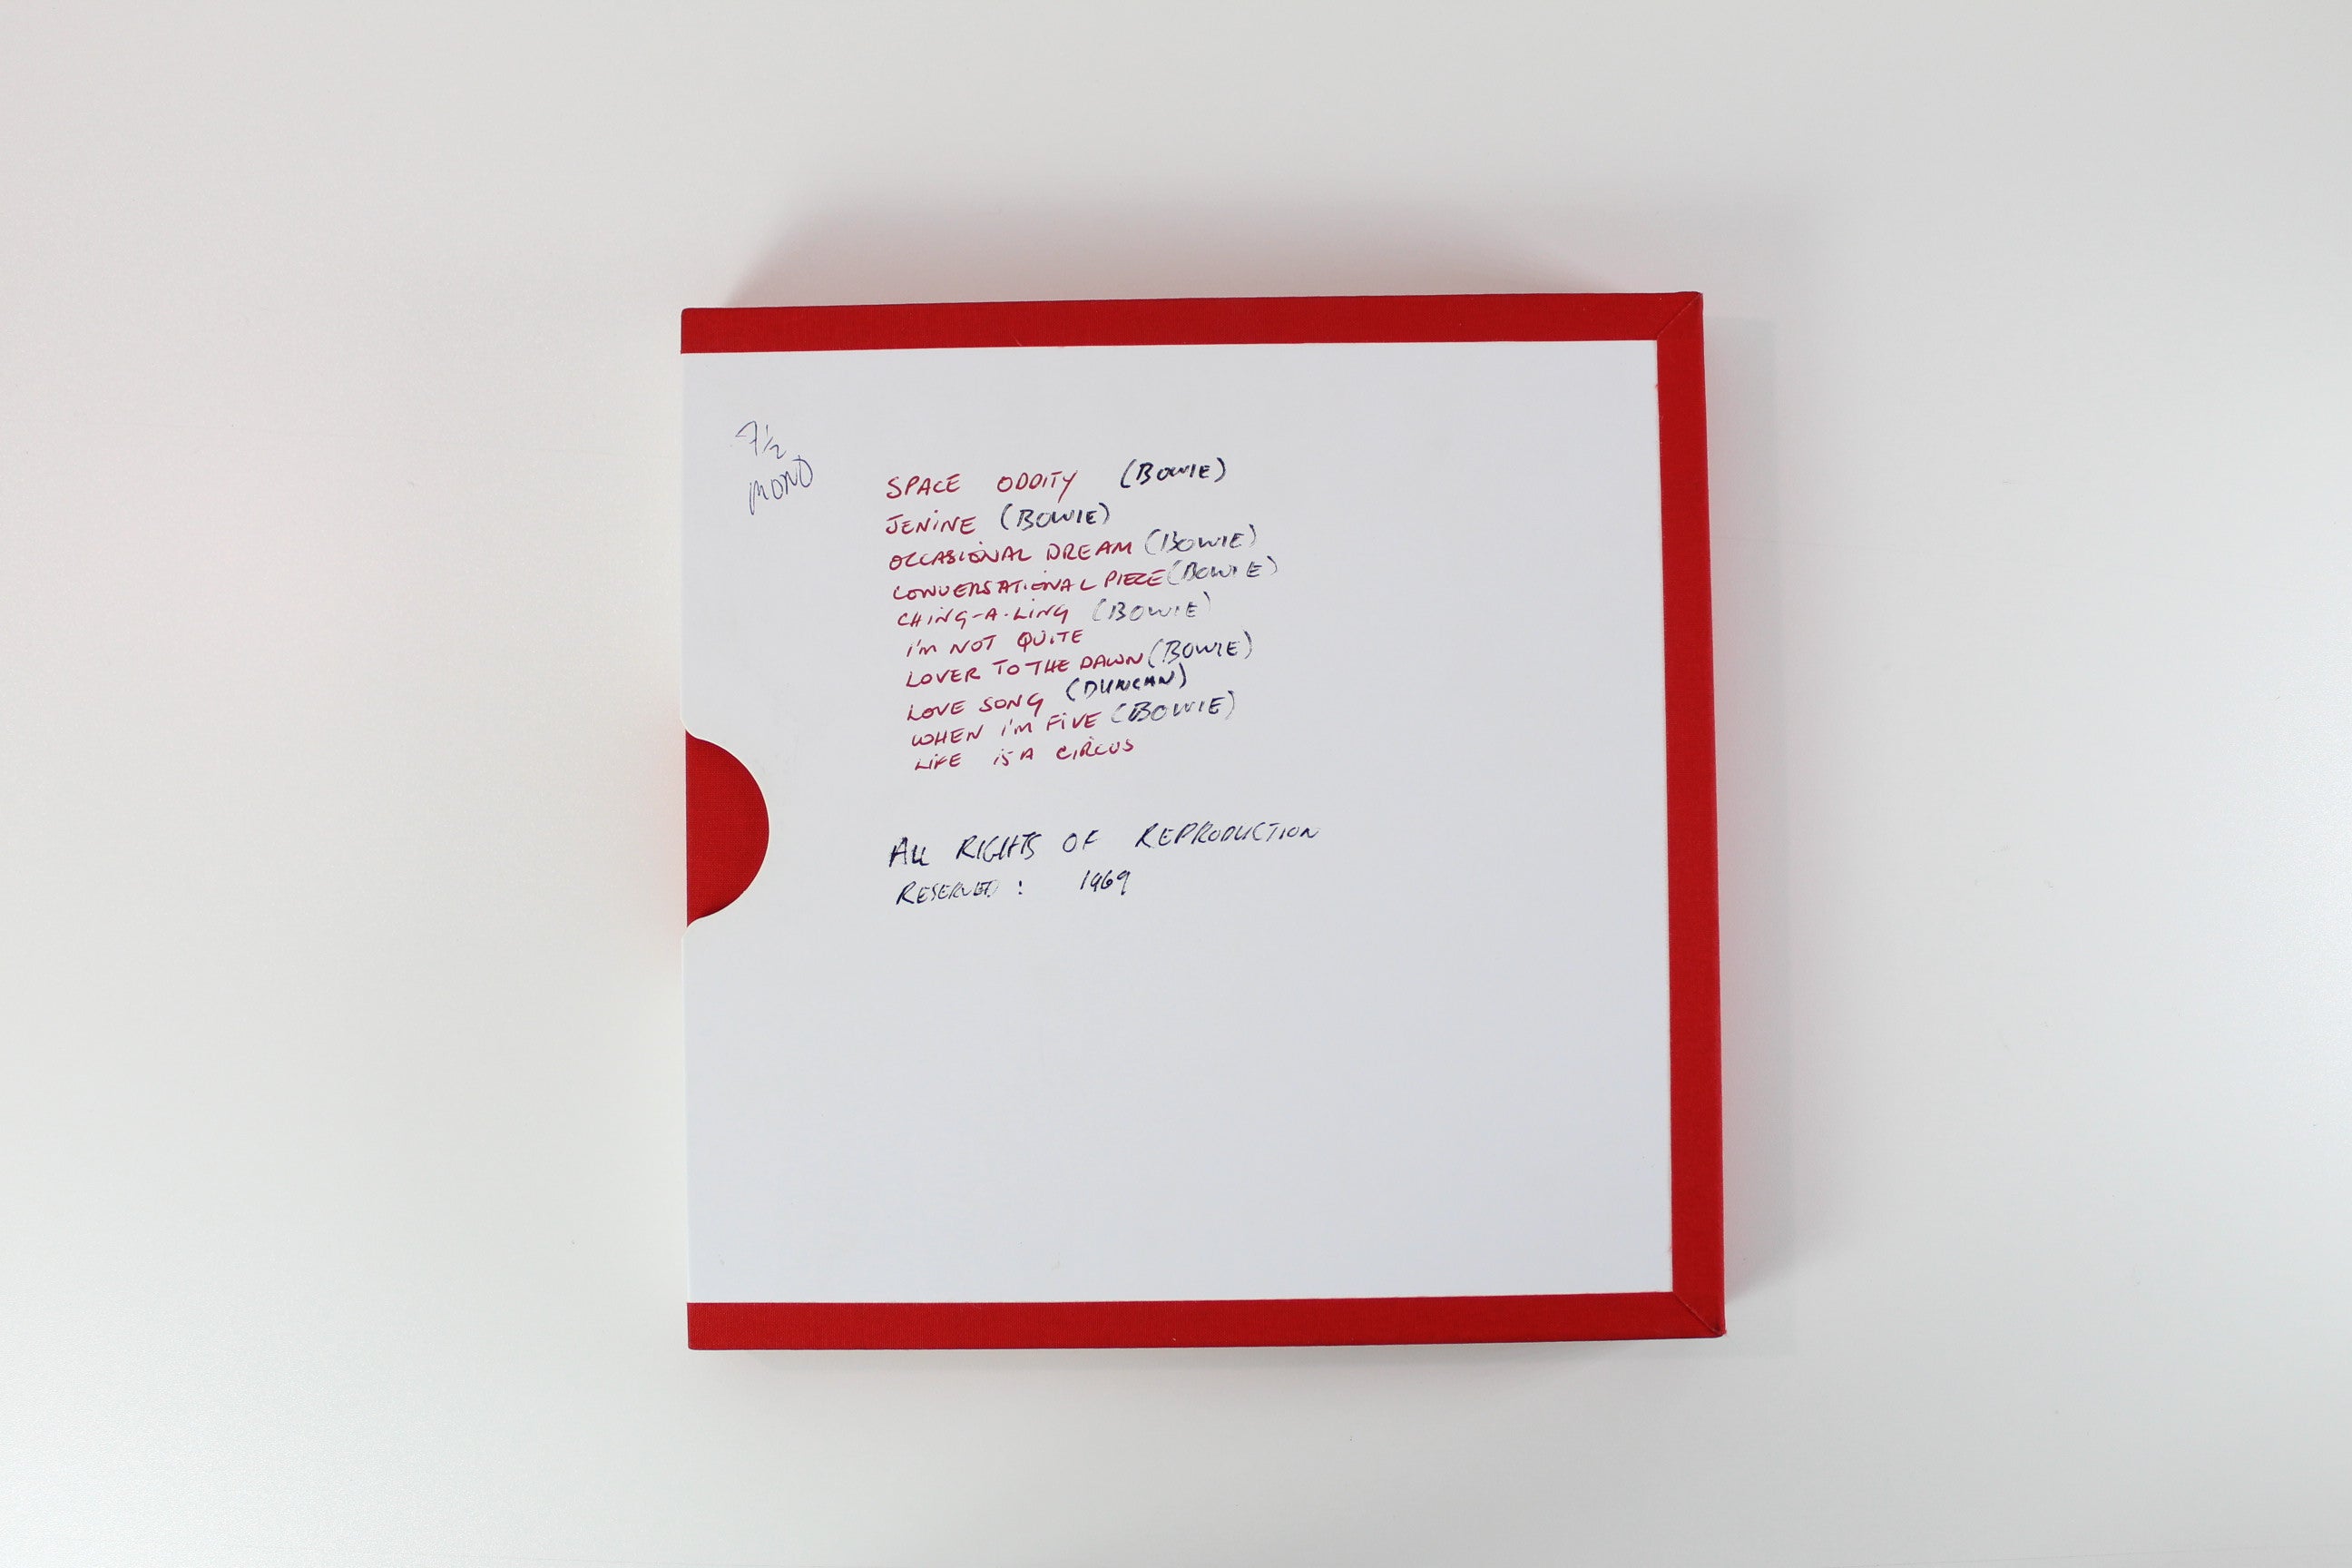 7 1/2
MONO
SPACE ODDITY (BOWIE)
JENINE (BOWIE)
OCCASIONAL DREAM (BOWIE)
CONVERSATIONAL PIECE (BOWIE)
CHING-A-LING (BOWIE)
I'M NOT QUITE
LOVER TO THE DAWN (BOWIE)
LOVE SONG (DUNCAN)
WHEN I'M FIVE (BOWIE)
LIFE IS A CIRCUS
ALL RIGHTS OF REPRODUCTION
RESERVED : 1969